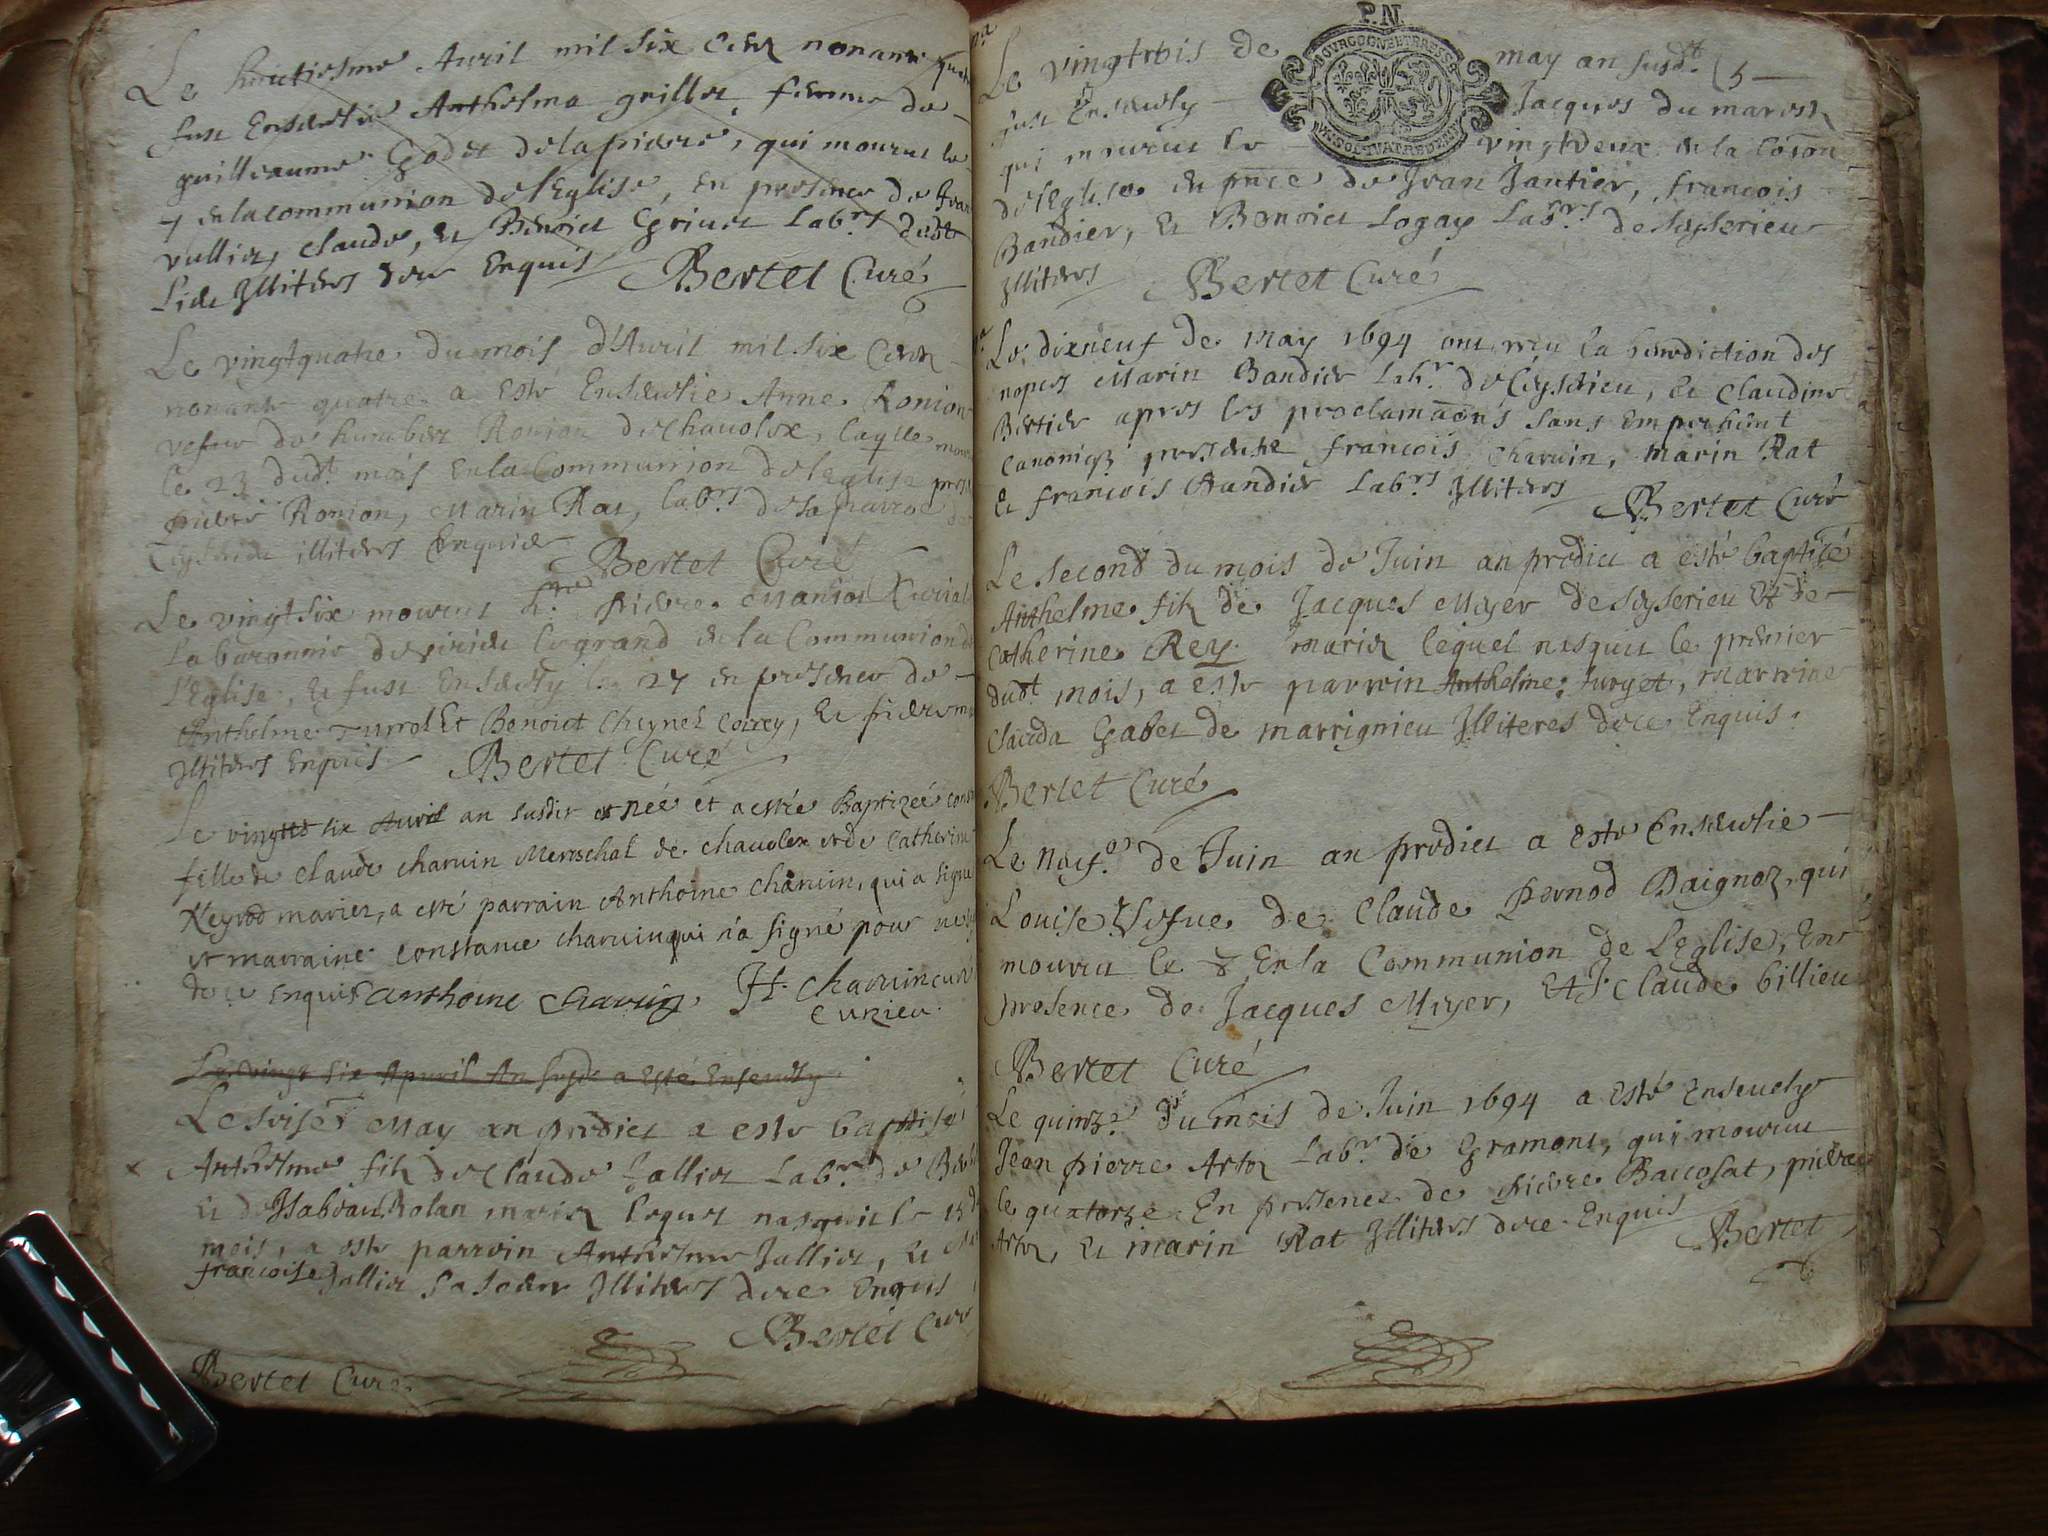 Le huictiesme Avril mil six cens nonante quatre
fust Ensevelie Anthelma grillet, femme de
guilleaume Godet delapierre, qui mourut le
7 en la communion de l'Eglise, en presence de
vullier, claude, et Benoict Labrs dudt
Lieu Illiteres de ce Enquis Bertet Curé
Le vingtquatre du mois d'Avril mil six Cens
nonante quatre a esté Ensevelie Anne Ronion
vefve de humbert Ronion de chavolex, laqlle
le 23 dudt mois En la Communion de l'eglise
pierre Ronion, Marin Rat, labrs de sa parroe
illiteres Enquis
Bertet Curé
Le vingtsix mourut pierre
la baronnie de le grand en la Communion de
l'Eglise, et fust Ensevely le 27 en presence de
Anthelme Et Benoict Cheynel et pierre
Illiteres Enquis Bertet Curé
Le vingt six Avril an susdit est née et a estée Baptizée
fille de claude charvin Mereschal de chavolex et de Catherine
Neyrod mariez, a esté parrain Anthoine charvin, qui a signé
et marraine constance charvin qui n'a signé pour ne
de ce enquise anthoine charvin H. charvin curé
Le vingt six Apvril An susdt a Esté Ensevely
Le May an predict a esté baptisé
Anthelme filz de Claude Jallier Labr de
et d'Isabeau Rolan mariez lequel nasquit le 15
mois, a esté parrein Anthelme Jallier, et
francoise Jallier sa soeur Illiteres de ce Enquis
Bertet Curé
Bertet Curé
P.N.
Le vingtrois de may an susdt
fust Ensevely Jacques du marest
qui mourut le vingtdeux en la
de l'Eglise en pnce de Jean Jantier, francois
Bandier, et Benoict Logay Labrs de Seyserieu
Illiteres Bertet Curé
Le dixneuf de May 1694 ont receu la benediction des
nopces Marin Bandier Labr de Ceyserieu, et Claudine
Bertier apres les proclamaons sans Empechemt
Canonicq presents francois charvin, Marin Rat
et francois Bandier Labrs Illiteres
Bertet Curé
Le second du mois de Juin an predict a esté baptisé
Anthelme filz de Jacques Meyer de Seyserieu Et de
Catherine Rey mariez lequel nasquit le premier
dudt mois, a esté parrein Anthelme Juryet, marreine
Clauda Gabet de marrignieu Illiteres de ce Enquis.
Bertet Curé
Le de Juin an predict a esté Ensevelie
Louise Vefve de Claude Pernod Baignoz, qui
mourut le 8 En la Communion de L'eglise, En
presence de Jacques Meyer, Et Claude billieu
Bertet Curé
Le quinze du mois de Juin 1694 a esté Ensevely
Jean pierre Artoz Labr de Gramont, qui mourut
le quatorze En presence de pierre Baccosat, pierre
Artoz, et marin Rat Illiteres de ce Enquis
Bertet